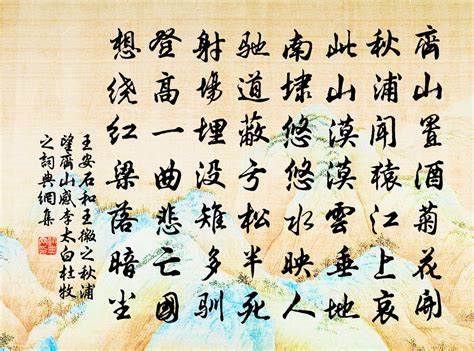 齊山置酒菊花開
秋浦聞猿江上哀
此山漠漠雲垂地
南埭悠悠水映人
馳道蔽亏松半死
射場埋没雉多馴
登高一曲悲亡國
想绕红梁落暗尘
王安石和王微之秋浦
望齊山感李太白杜牧
之詞典網集